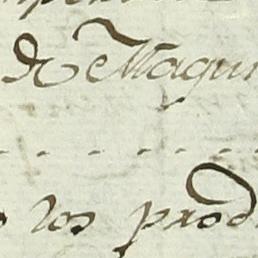 de Maqui
los prod